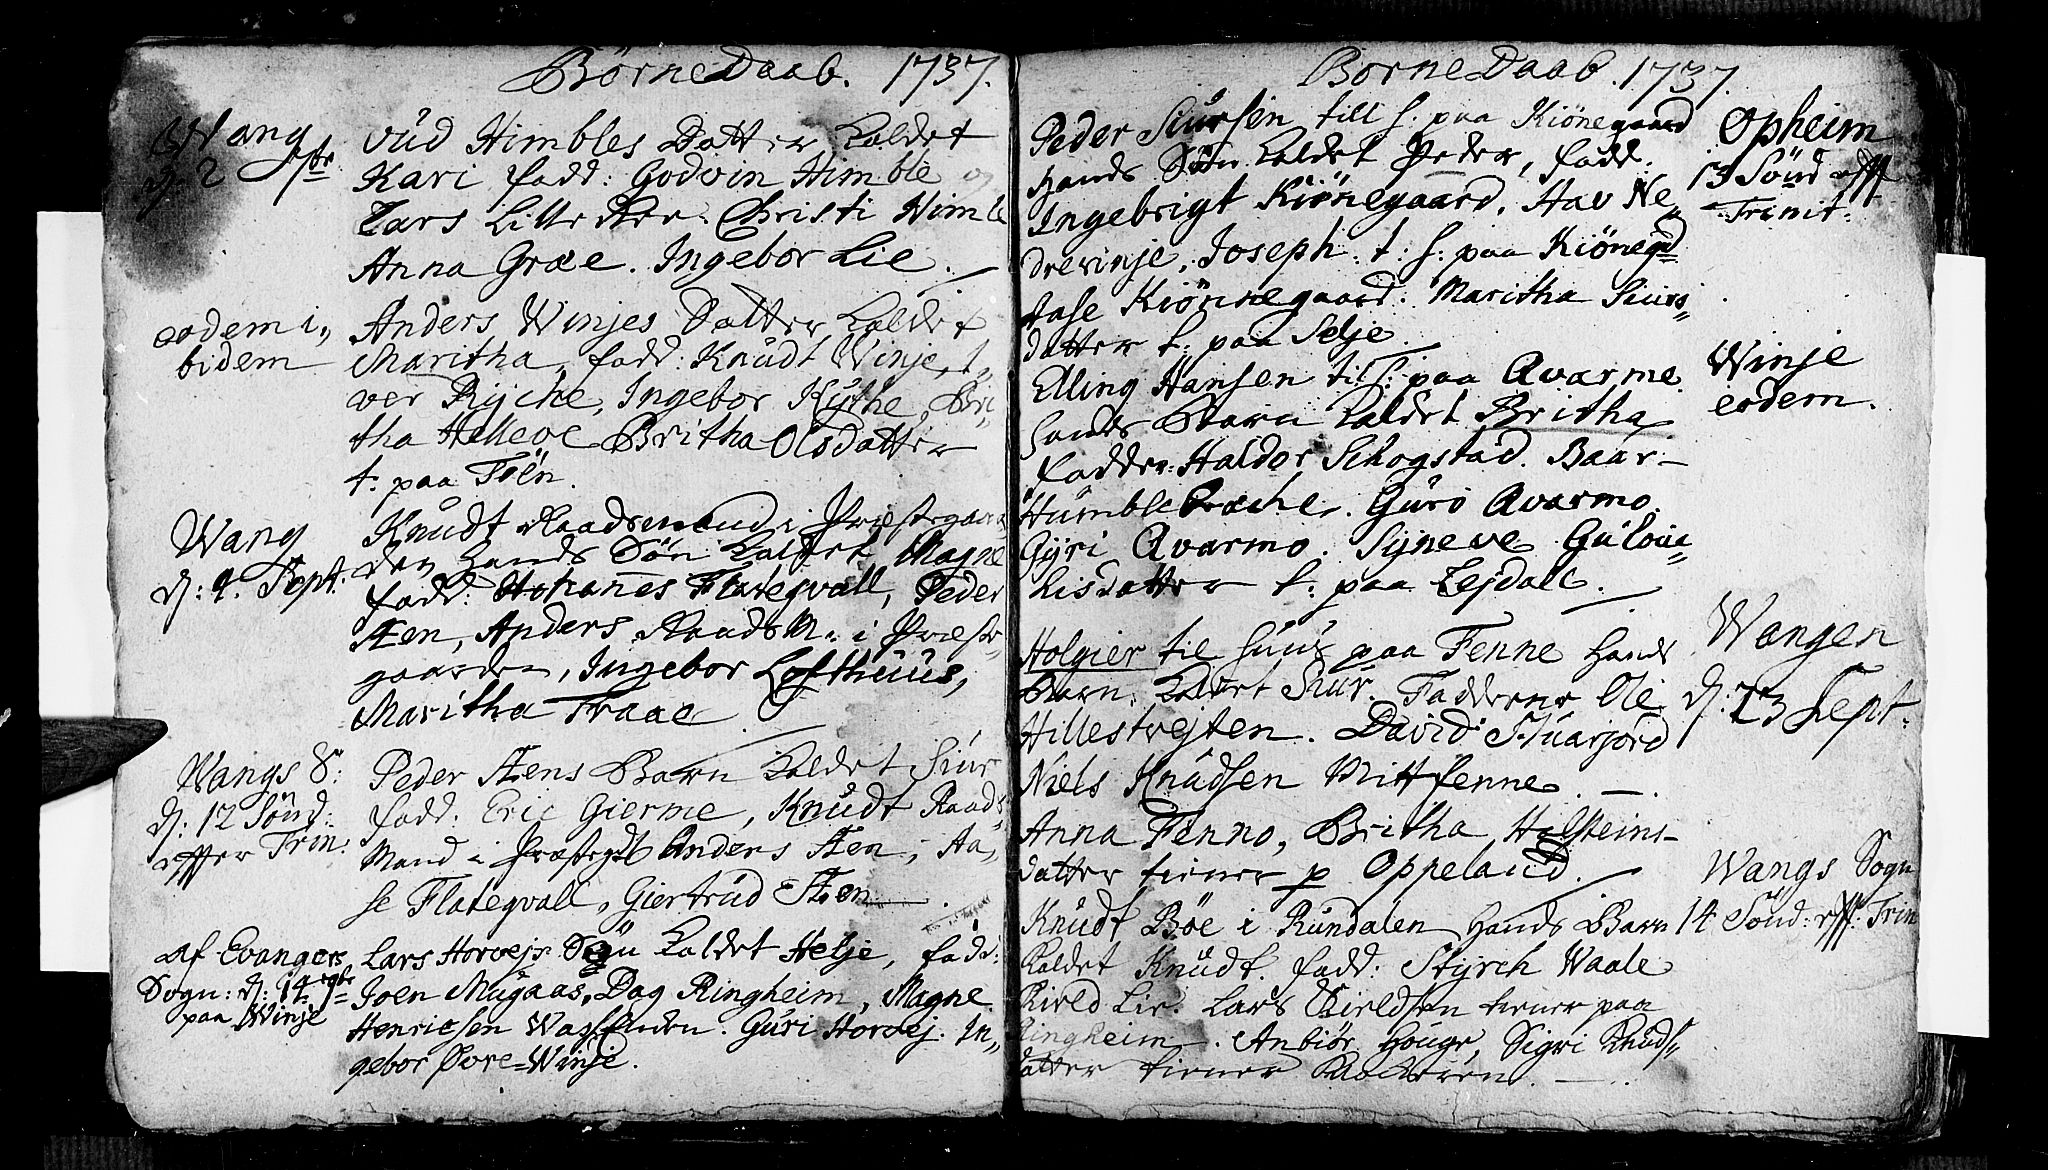 Börne Daab. 1737.
Wang
d: 2 7br
vüd Himbles Datter Kaldet
Kari fadd: Godvin Himble og
Lars Lille Christi Himle
Anna Græe. Ingebor Lie.
eodem i„
bidem
Anders Winjes Datter Kaldet
Maritha, fadd: Knüdt Winje, I„
ver Rijche, Ingebor Kÿthe, Bri„
tha Helleve Britha Olsdatter
t: paa Töen.
Wang
d: 9. Sept.
Knüdt Raadsmand i Præstegaar
den Hands Sön Kaldet Magne
fadd: Hohanes Flategvall, Peder
Æen, Anders Raads M: i Præste„
gaarden, Ingebor Lofthüüs,
Maritha Traae
Wangs S:
d: 12 Sönd:
effter Trin:
Peder Æens Barn Kaldet Siur
fadd: Eric Gierme, Knüdt Raads„
Mand i Præstegd Anders Æen, Aa„
se Flategvall, Giertrüd Æen.
af Evanger
Sogn: d: 14 7br
paa Winje
Lars Horvejs Sön Kaldet Helje, fadd:
Joen Mügaas, Dag Ringheim, Magne
Henricsen Wassenden. Güri Horvej. In„
gebor Øvre=Winje.
Börne Daab. 1737.
Peder Siursen till h. paa Kiönegaard
Hands Sön Kaldet Peder, fadd:
Ingebrigt Kiönegaard, Hav Ne„
drevinje, Joseph t: h: paa Kiönegd
Aase Kiönnegaard: Maritha Siurs„
datter t: paa Selje.
Opheim
13 Sönd eff
Trinit:
Elling Hansen til h: paa Avarme
Hands Barn Kaldet Britha
fadder: Haldor Schogstad. Baar
Hümble Güro Avarmo.
Gÿri Avarmo. Sÿneve Gülow„
hisdatter t: paa Lejdall.
Winje
eodem.
Holgier til Hüüs paa Fenne Hands
Barn Kaldet Siur. Fadderne Ole
Hillestvejten. David Skiarjord
Niels Knüdsen Mittfenne.
Anna Fenno, Britha Holsteins
datter tiener p Oppeland.
Wangen
d: 23 Sept.
Knüdt Böe i Rundalen Hands Barn
Kaldet Knüdt. fadd: Stÿrch Waale
Sireld Lie. Lars Sireldsen tiener paa
Ringheim. Anbiör Houge, Sigri Knüds„
datter tiener
Wangs Sogn
14 Sönd: eff: Trin